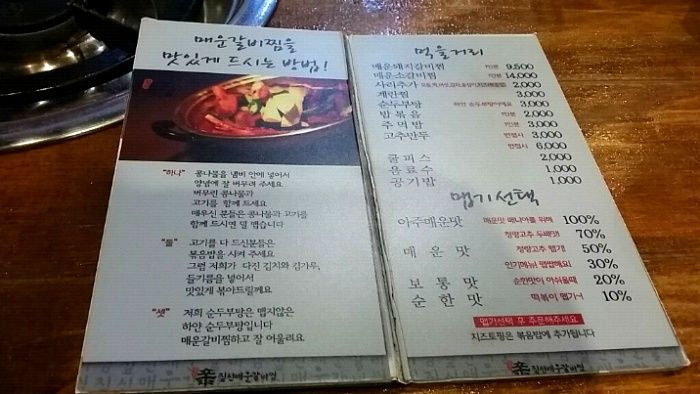 매운갈비찜을
맛있게 드시는 방법!
"하나" 콩나물을 냄비 안에 넣어서
양념에 잘 버무려 주세요
버무린 콩나물과
고기를 함께 드세요
매우신 분들은 콩나물과 고기를
함께 드시면 덜 맵습니다
"둘" 고기를 다 드신분들은
볶음밥을 시켜 주세요
그럼 저희가 다진 김치와 김가루,
들기름을 넣어서
맛있게 볶아드릴께요
"셋" 저희 순두부탕은 맵지않은
하얀 순두부탕입니다
매운갈비찜하고 잘 어울려요.
먹을거리
매운돼지갈비찜 1인분 9,500
매운소갈비찜 1인분 14,000
사리추가 2,000
계란찜 3,000
순두부탕 하얀 순두부탕이에요 3,000
밥볶음 1인분 2,000
주먹밥 1인분 3,000
고추만두 반접시 3,000
한접시 6,000
쿨피스 2,000
음료수 1,000
공기밥 1,000
맵기선택
아주매운맛 매운맛 매니아를 위해 100%
청량고추 두배맛! 70%
매운맛 청량고추 맵기! 50%
인기메뉴! 맵짭해요! 30%
보통맛 순한맛이 아쉬울때 20%
순한맛 떡볶이 맵기~! 10%
맵기선택 후 주문해주세요
치즈토핑은 볶음밥에 추가됩니다
辛 킹신매운갈비찜
辛 킹신매운갈비찜